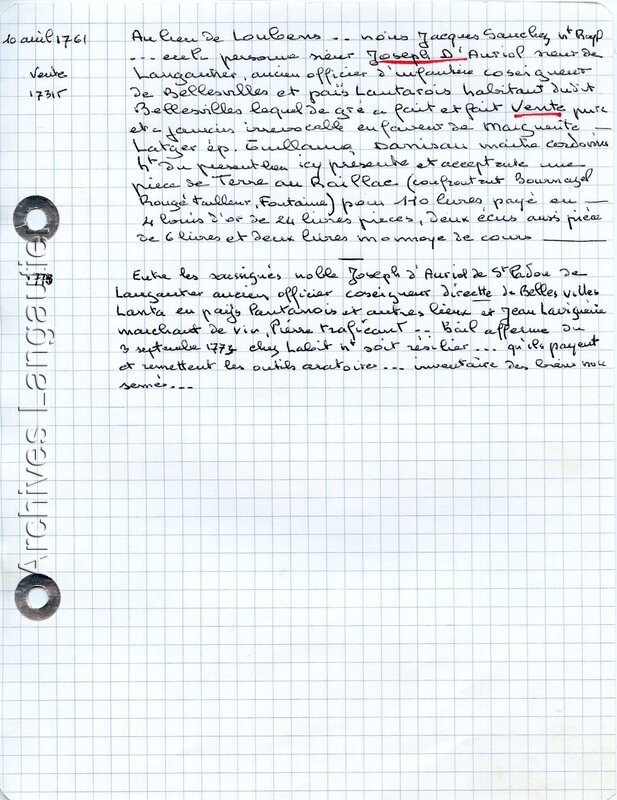 10 avril 1761
Vente
1731
Au lieu de Loubens .. nous Jacques Sanchez nt Royl
... en personne sieur Joseph D'Auriol sieur de
Langautier, ancien officier d'infanterie coseigneur
de Bellesvilles et païs Lantarois habitant dudit
Bellesvilles lequel de gré a fait et fait Vente pure
et a jamais irrevocable en faveur de Marguerite
Latger ép. Guillaume Damisau maitre cordonnier
ht du present lieu icy présente et acceptante une
pièce de Terre au Raillac (confrontant Bournazel
Rougé tailleur, Fontaine) pour 110 livres, payé en
4 louis d'or de 24 livres pieces, deux écus aussi pièce
de 6 livres et deux livres monnoye de cours
Entre les soussignés noble Joseph d'Auriol de St Padou de
Langautier ancien officier coseigneur directe de Belles villes
Lanta en païs Lantarois et autres lieux et Jean Lavignerie
marchant de vin, Pierre traficant .. Bail afferme du
3 septembre 1773 chez Labit nt soit résilier ... qu'ils payent
et remettent les outils aratoires ... inventaire des biens non
semés ...
Archives Langautier